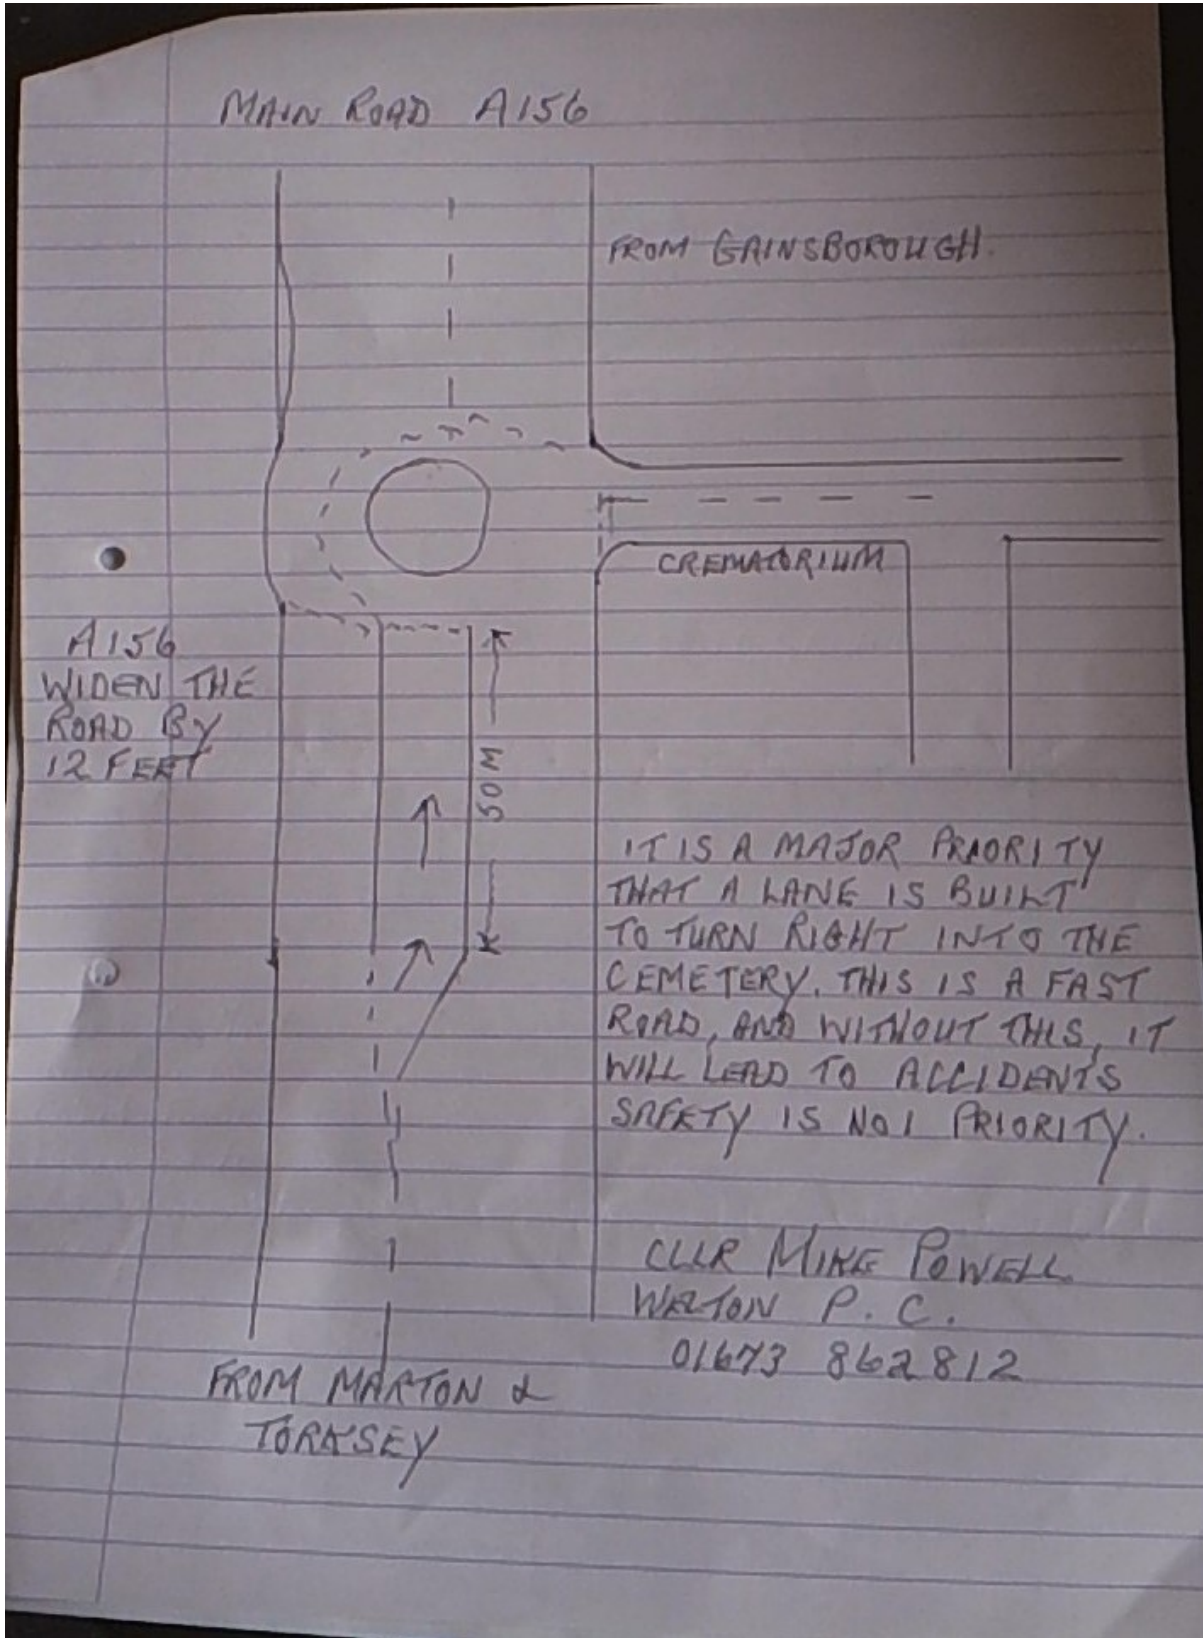 MAIN ROAD A156
FROM GAINSBOROUGH.
CREMATORIUM
A156
WIDEN THE
ROAD BY
12 FEET
50M
IT IS A MAJOR PRIORITY
THAT A LANE IS BUILT
TO TURN RIGHT INTO THE
CEMETERY. THIS IS A FAST
ROAD, AND WITHOUT THIS, IT
WILL LEAD TO ACCIDENTS
SAFETY IS NO1 PRIORITY.
CLLR MIKE POWELL
WELTON P. C.
01673 862812
FROM MARTON &
TORKSEY